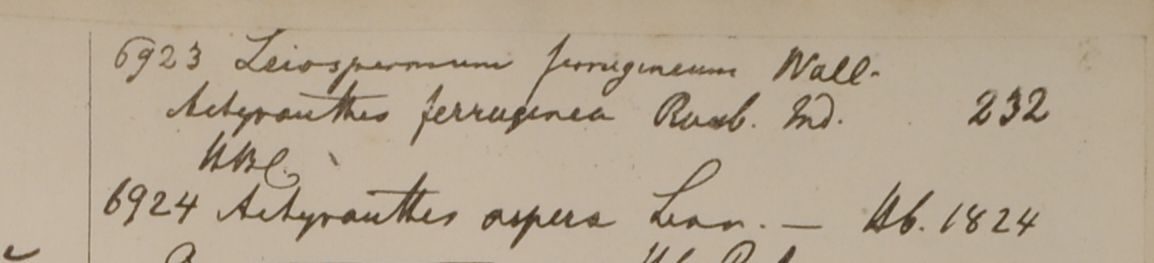 6923 Leiospermum ferrugineum Wall.
Achyranthes ferruginea Roxb. Ind. 232
HBC.
6924 Achyranthes aspera Linn. — Hb. 1824